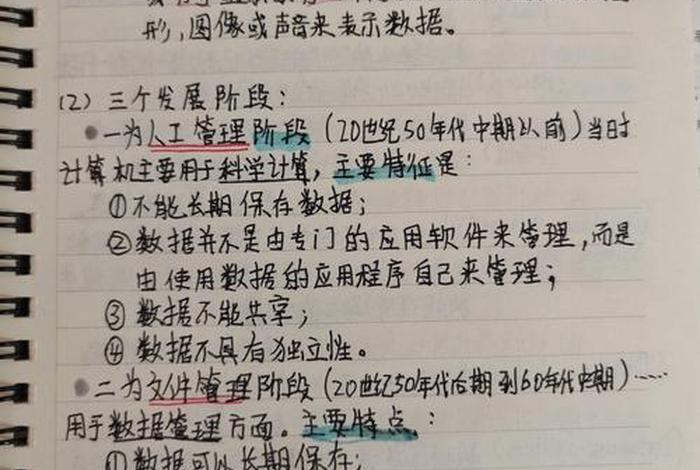 形,图像或声音来表示数据。
(2) 三个发展阶段:
一为人工管理阶段 (20世纪50年代中期以前) 当时
计算机主要用于科学计算, 主要特征是:
①不能长期保存数据;
②数据并不是由专门的应用软件来管理,而是
由使用数据的应用程序自己来管理;
③数据不能共享;
④数据不具有独立性。
二为文件管理阶段 (20世纪50年代后期到60年代中期) ……
用于数据管理方面。主要特点:
①数据可以长期保存;